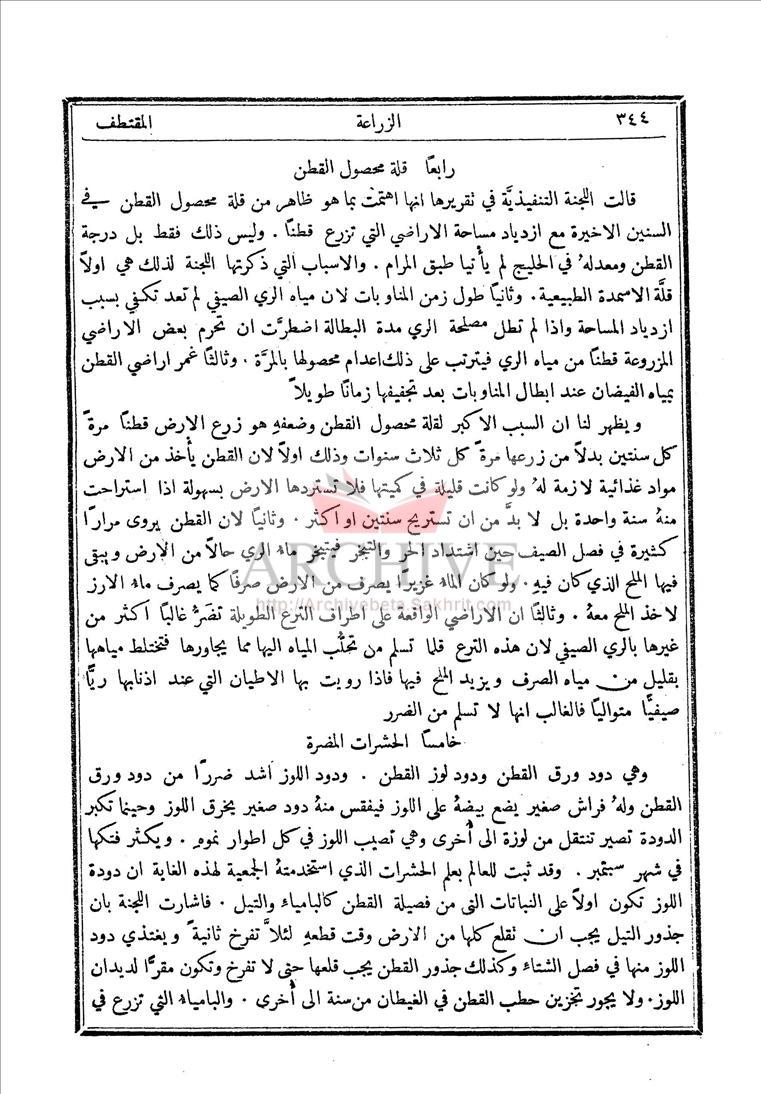 ٣٤٤ الزراعة المقتطف
رابعًا قلة محصول القطن
قالت اللجنة التنفيذيَّة في تقريرها انها اهتمَّت بما هو ظاهر من قلة محصول القطن في
السنين الاخيرة مع ازدياد مساحة الاراضي التي تزرع قطنًا . وليس ذلك فقط بل درجة
القطن ومعدلهُ في الحليج لم يأتيا طبق المرام . والاسباب التي ذكرتها اللجنة لذلك هي اولاً
قلَّة الاسمدة الطبيعية . وثانيًا طول زمن المناوبات لان مياه الري الصيفي لم تعد تكفي بسبب
ازدياد المساحة واذا لم تطل مصلحة الري مدة البطالة اضطرَّت ان تحرم بعض الاراضي
المزروعة قطنًا من مياه الري فيترتب على ذلك اعدام محصولها بالمرَّة . وثالثًا غمر اراضي القطن
بمياه الفيضان عند ابطال المناوبات بعد تجفيفها زمانًا طويلاً
ويظهر لنا ان السبب الاكبر لقلة محصول القطن وضعفهِ هو زرع الارض قطنًا مرةً
كل سنتين بدلاً من زرعها مرةً كل ثلاث سنوات وذلك اولاً لان القطن يأخذ من الارض
مواد غذائية لازمة لهُ ولو كانت قليلة في كميتها فلا تستردها الارض بسهولة اذا استراحت
منهُ سنة واحدة بل لا بدَّ من ان تستريح سنتين او اكثر . وثانيًا لان القطن يروى مرارًا
كثيرة في فصل الصيف حين اشتداد الحر والتبخر فيتبخر ماء الري حالاً من الارض ويبقى
فيها الملح الذي كان فيهِ . ولو كان الماء غزيرًا يصرف من الارض صرفًا كما يصرف ماء الارز
لاخذ الملح معهُ . وثالثًا ان الاراضي الواقعة على اطراف الترع الطويلة تضَرُّ غالبًا اكثر من
غيرها بالري الصيفي لان هذه الترع قلما تسلم من تحلُّب المياه اليها مما يجاورها فتختلط مياهها
بقليل من مياه الصرف ويزيد الملح فيها فاذا رويت بها الاطيان التي عند اذنابها ريًّا
صيفيًّا متواليًا فالغالب انها لا تسلم من الضرر
خامسًا الحشرات المضرة
وهي دود ورق القطن ودود لوز القطن . ودود اللوز اشد ضررًا من دود ورق
القطن ولهُ فراش صغير يضع بيضهُ على اللوز فيفقس منهُ دود صغير يخرق اللوز وحينما تكبر
الدودة تصير تنتقل من لوزة الى أُخرى وهي تصيب اللوز في كل اطوار نموهِ . ويكثر فتكها
في شهر سبتمبر . وقد ثبت للعالم بعلم الحشرات الذي استخدمتهُ الجمعية لهذه الغاية ان دودة
اللوز تكون اولاً على النباتات التي من فصيلة القطن كالبامياء والتيل . فاشارت اللجنة بان
جذور التيل يجب ان تقلع كلها من الارض وقت قطعهِ لئلاَّ تفرخ ثانيةً ويغتذي دود
اللوز منها في فصل الشتاء وكذلك جذور القطن يجب قلعها حتى لا تفرخ وتكون مقرًّا لديدان
اللوز . ولا يجوز تخزين حطب القطن في الغيطان من سنة الى أُخرى . والبامياء التي تزرع في
ARCHIVE
http://Archivebeta.Sakhrit.com